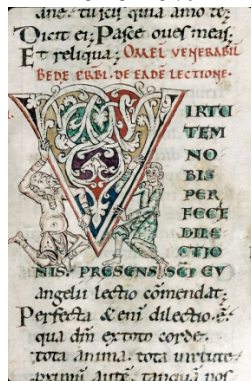 ane. tu scis quia amo te.
Dicit ei; Pasce oues meas.
Et reliqua; OMEL VENERABIL
BEDE PRBI. DE EADE LECTIONE.
VIRTU
TEM
NO
BIS
PER
FECE
DILE
CTIO
NIS. PRESENS SCI EV
angelii lectio comendat;
Perfecta & eni dilectio. ē
qua dm ex toto corde.
tota anima. tota uirtute.
tanquā nos